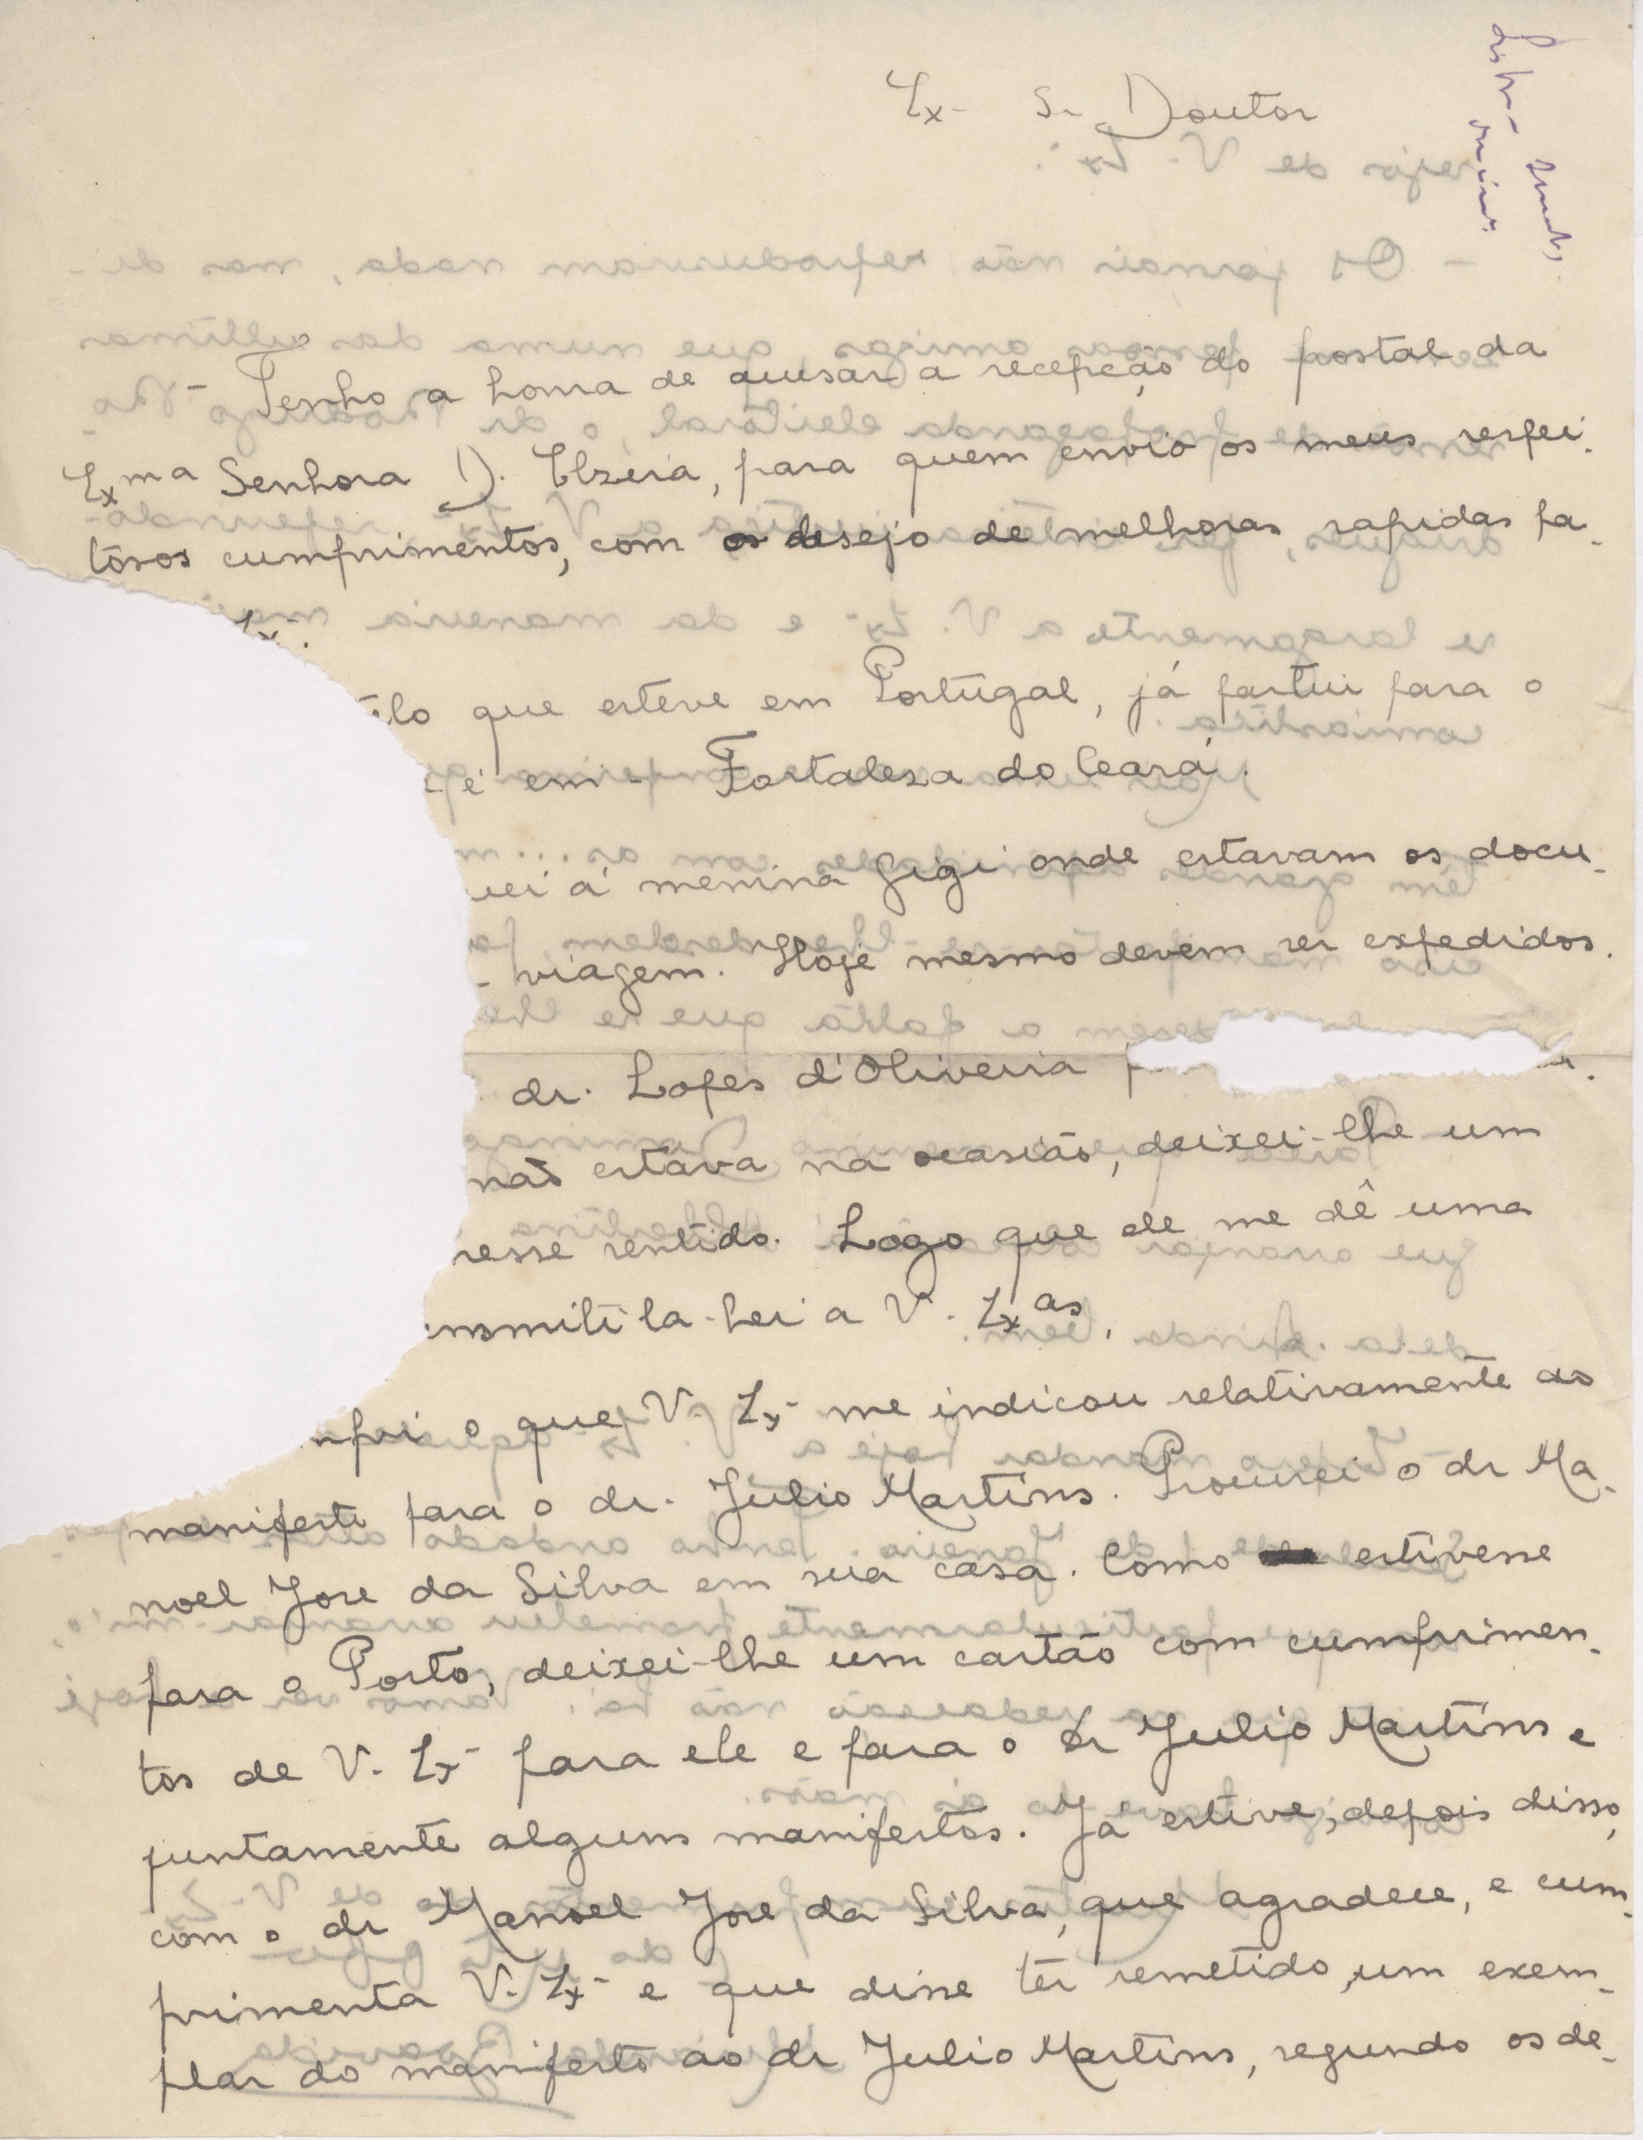 Ex- Sr Doutor
- Tenho a honra de acusar a recepção do postal da
Exma Senhora D. Elzira, para quem envio os meus respei-
tosos cumprimentos, com os desejo de melhoras rapidas pa-
Ex-.
télo que esteve em Portugal, já partiu para o
é em - Fortalesa do Ceará.
uei á menina Gigi onde estavam os docu-
- viagem. Hoje mesmo devem ser expedidos.
dr. Lopes d'Oliveira
não estava na ocasião, deixei-lhe um
nesse sentido. Logo que ele me dê uma
ansmiti la-hei a V. Exas.
mpri o que V. Ex- me indicou relativamente ao
manifesto para o dr. Julio Martins. Procurei o dr Ma-
noel Jose da Silva em sua casa. Como estivesse
para o Porto, deixei-lhe um cartão com cumprimen-
tos de V. Ex- para ele e para o dr Julio Martins e
juntamente alguns manifestos. Já estive, depois disso,
com o dr Manoel Jose da Silva, que agradece, e cum-
primenta V. Ex- e que disse têr remetido um exem-
plar do manifesto ao dr Julio Martins, segundo os de-